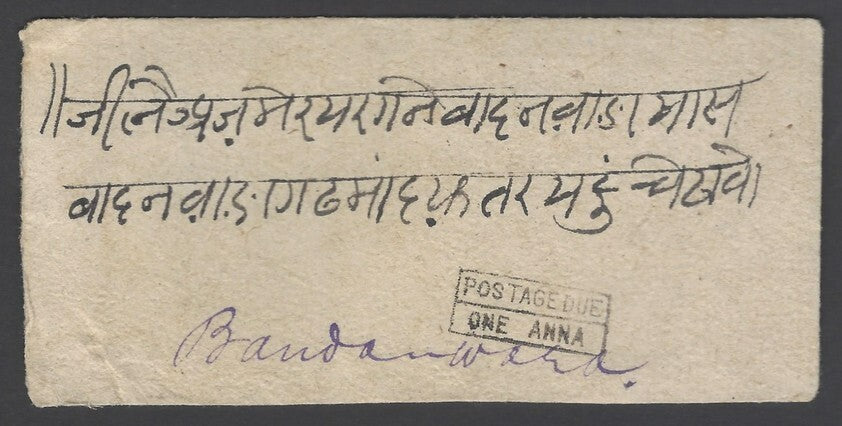 ॥जीलै अजमेर परगने बादनवाडा मास
बादनवाडा गढ मां दफतर पहुंचे
POSTAGE DUE
ONE ANNA
Bandanwara.